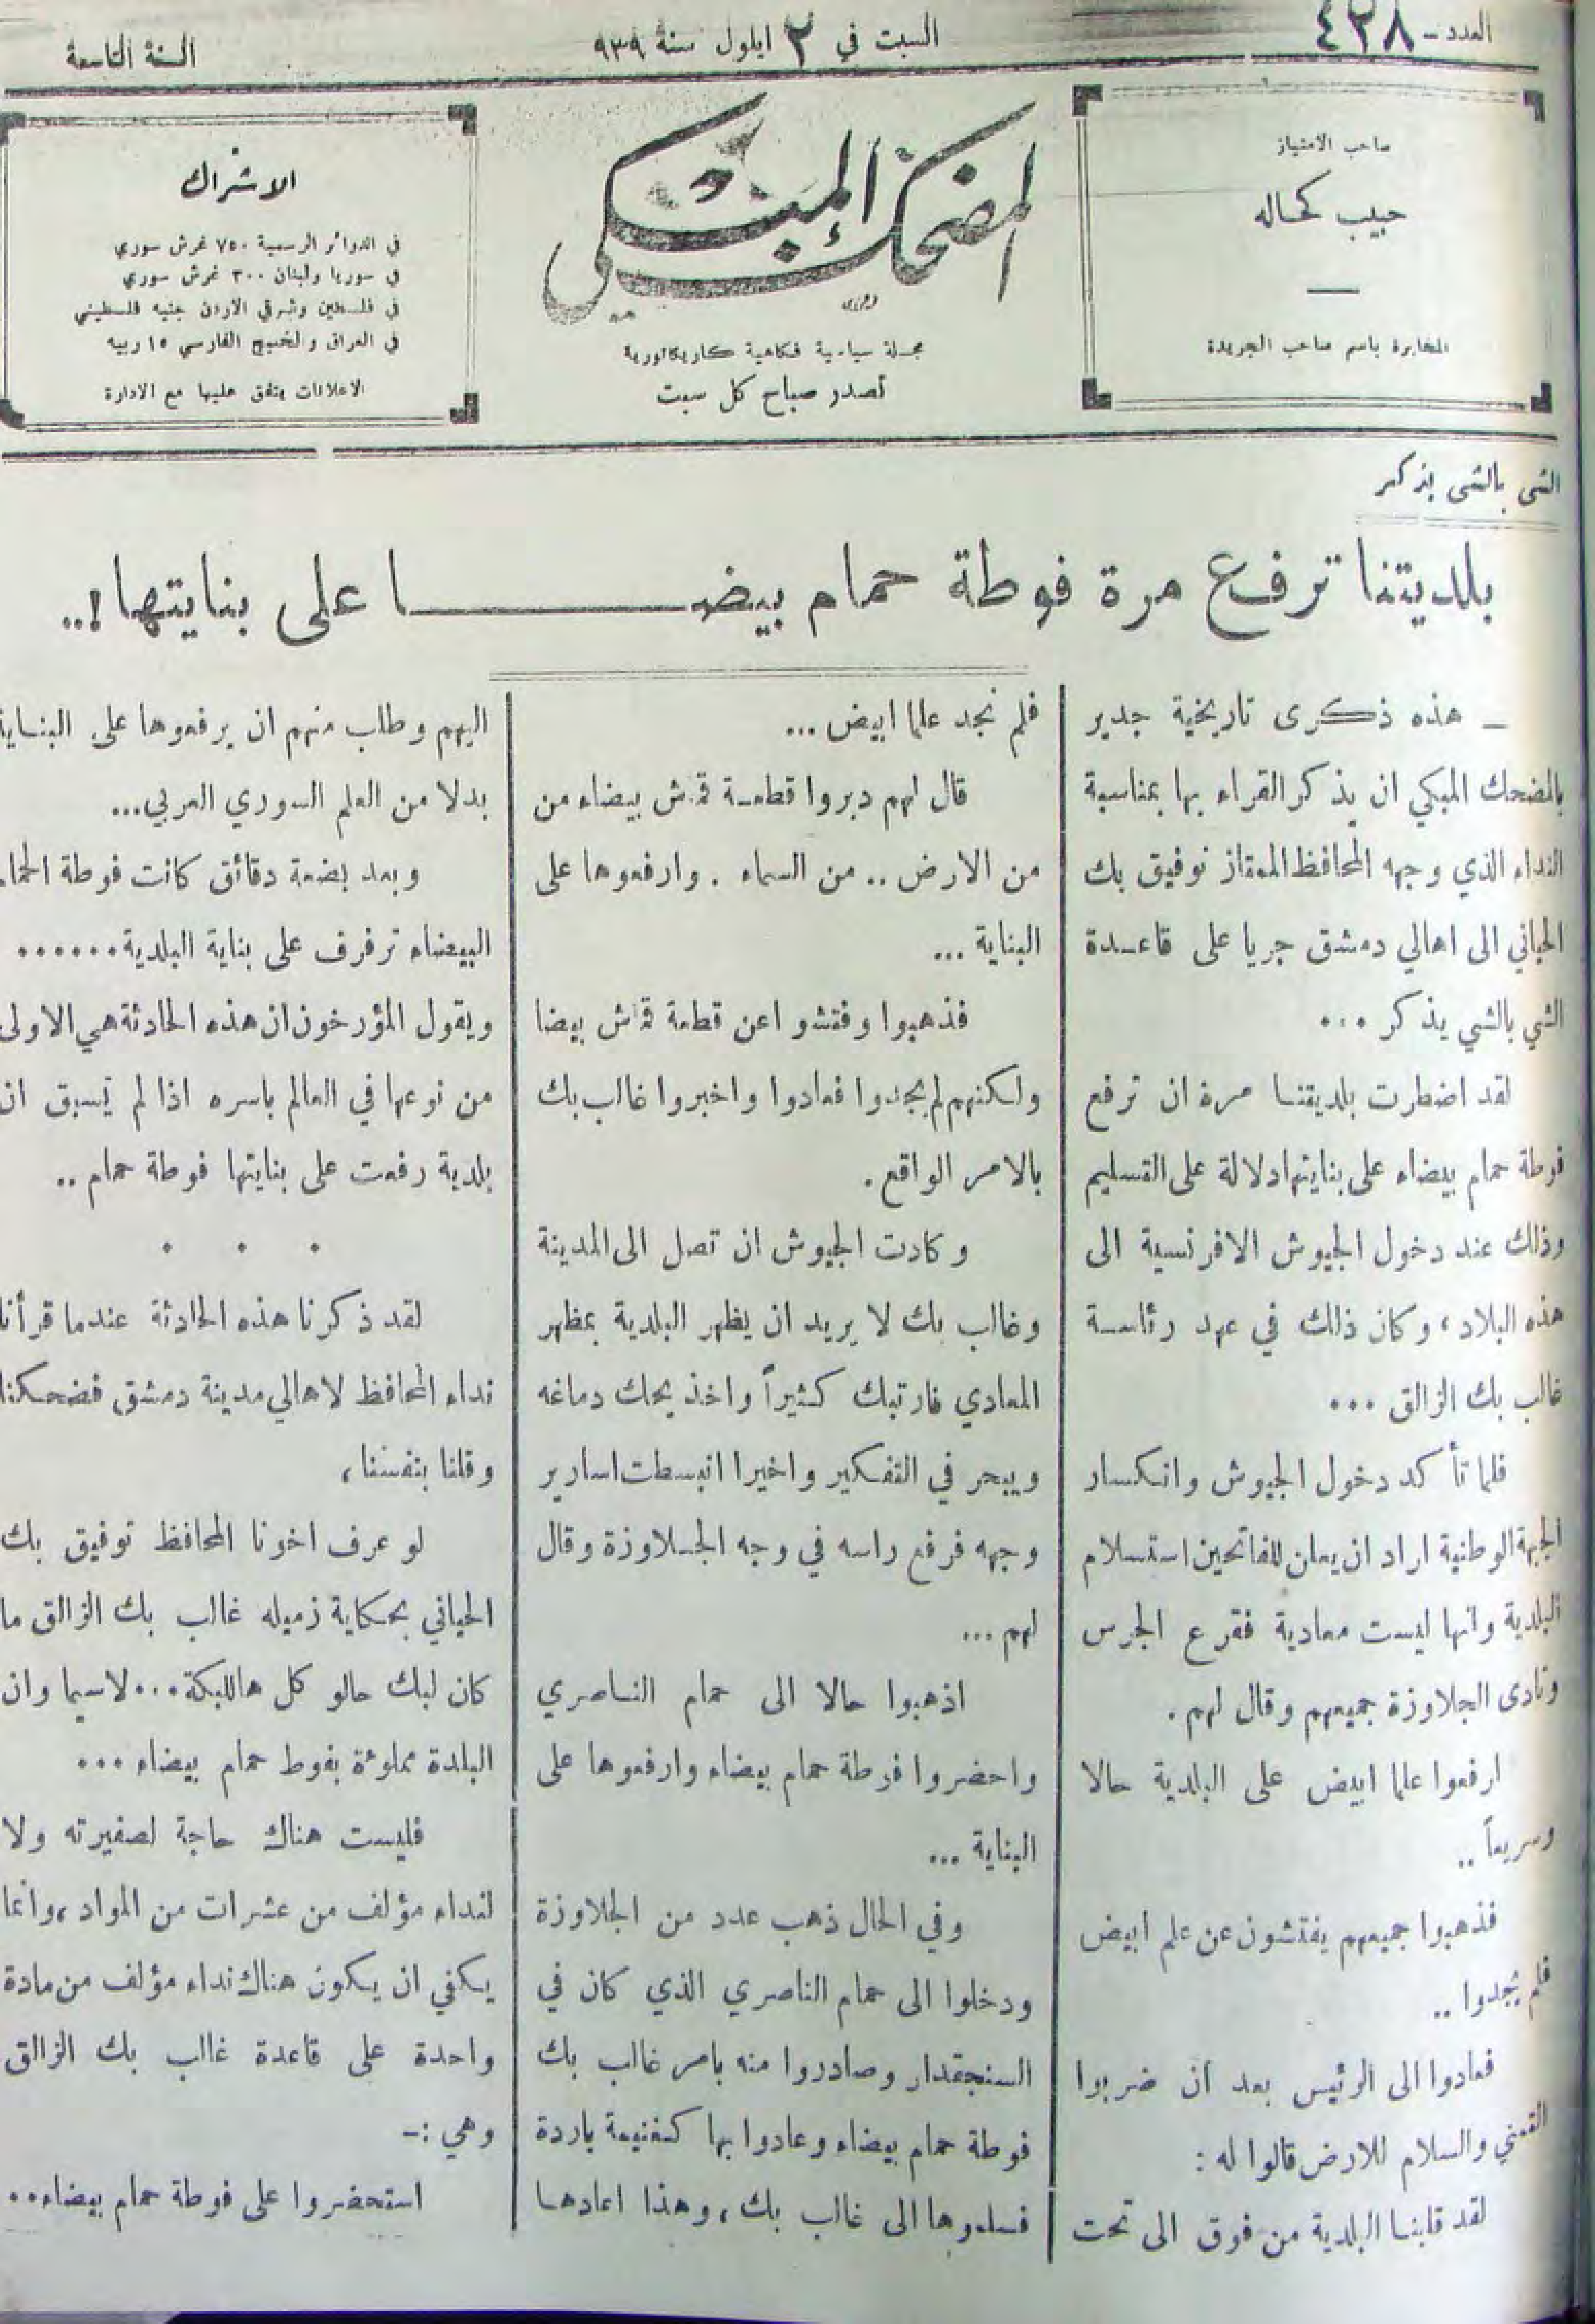 العدد - ٤٢٨
السبت في ٢ ايلول سنة ٩٣٩
السنة التاسعة
صاحب الامتياز
حبيب كحاله
المخابرة باسم صاحب الجريدة
المضحك المبكي
مجلة سياسية فكاهية كاريكاتورية
تصدر صباح كل سبت
الاشتراك
في الدوائر الرسمية ٧٥٠ غرش سوري
في سوريا ولبنان ٣٠٠ غرش سوري
في فلسطين وشرقي الاردن جنيه فلسطيني
في العراق والخليج الفارسي ١٥ ربيه
الاعلانات يتفق عليها مع الادارة
الشي بالشي يذكر
بلديتنا ترفع مرة فوطة حمام بيضـــــا على بنايتها !..
ـ هذه ذكرى تاريخية جدير
بالمضحك المبكي ان يذكر القراء بها بمناسبة
النداء الذي وجهه المحافظ الممتاز توفيق بك
الحياني الى اهالي دمشق جريا على قاعدة
الشي بالشي يذكر ...
لقد اضطرت بلديتنا مرة ان ترفع
فوطة حمام بيضاء على بنايتها دلالة على التسليم
وذلك عند دخول الجيوش الافرنسية الى
هذه البلاد ، وكان ذلك في عهد رئاسة
غالب بك الزالق ...
فلما تأكد دخول الجيوش وانكسار
الجبهة الوطنية اراد ان يعلن للفاتحين استسلام
البلدية وانها ليست معادية فقرع الجرس
ونادى الجلاوزة جميعهم وقال لهم .
ارفعوا علما ابيض على البلدية حالا
وسريعاً ..
فذهبوا جميعهم يفتشون عن علم ابيض
فلم يجدوا ..
فعادوا الى الرئيس بعد ان ضربوا
التمني والسلام للارض قالوا له :
لقد قلبنا البلدية من فوق الى تحت
فلم نجد علما ابيض ...
قال لهم دبروا قطعة قماش بيضاء من
من الارض .. من السماء . وارفعوها على
البناية ...
فذهبوا وفتشو اعن قطعة قماش بيضا
ولكنهم لم يجدوا فعادوا واخبروا غالب بك
بالامر الواقع .
وكادت الجيوش ان تصل الى المدينة
وغالب بك لا يريد ان يظهر البلدية بمظهر
المعادي فارتبك كثيراً واخذ يحك دماغه
ويبحر في التفكير واخيرا انبسطت اسارير
وجهه فرفع راسه في وجه الجلاوزة وقال
لهم ...
اذهبوا حالا الى حمام الناصري
واحضروا فوطة حمام بيضاء وارفعوها على
البناية ...
وفي الحال ذهب عدد من الجلاوزة
ودخلوا الى حمام الناصري الذي كان في
السنجقدار وصادروا منه بامر غالب بك
فوطة حمام بيضاء وعادوا بها كغنيمة باردة
فسلموها الى غالب بك ، وهذا اعادها
اليهم وطلب منهم ان يرفعوها على البناية
بدلا من العلم السوري العربي ...
وبعد بضعة دقائق كانت فوطة الحمام
البيضاء ترفرف على بناية البلدية ......
ويقول المؤرخون ان هذه الحادثة هي الاولى
من نوعها في العالم باسره اذا لم يسبق ان
بلدية رفعت على بنايتها فوطة حمام ..
. . .
لقد ذكرنا هذه الحادثة عندما قرأنا
نداء المحافظ لاهالي مدينة دمشق فضحكنا
وقلنا بنفسنا ،
لو عرف اخونا المحافظ توفيق بك
الحياني بحكاية زميله غالب بك الزالق ما
كان لبك حالو كل هاللبكة ... لاسيما وان
البلدة مملوئة بفوط حمام بيضاء ...
فليست هناك حاجة لصفيرته ولا
لنداء مؤلف من عشرات من المواد ، وانما
يكفي ان يكون هناك نداء مؤلف من مادة
واحدة على قاعدة غالب بك الزالق
وهي :-
استحضروا على فوطة حمام بيضاء ..